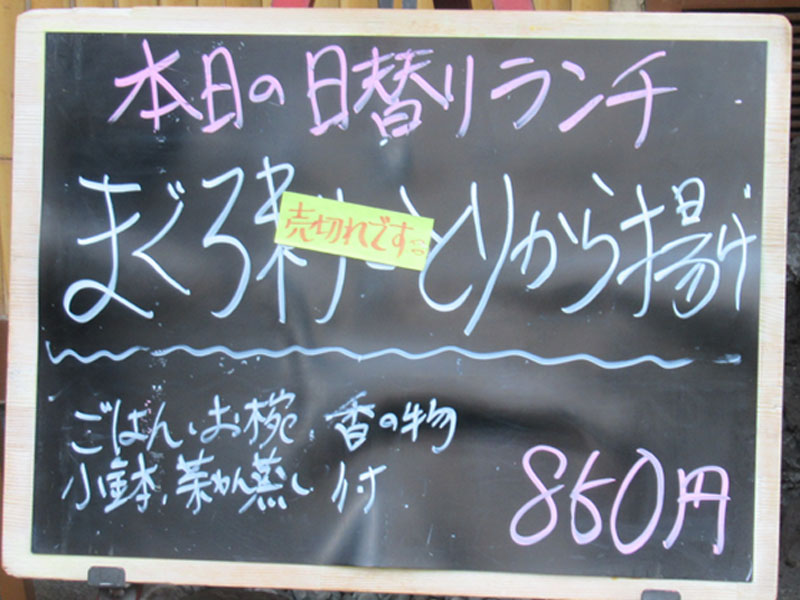 本日の日替りランチ
まぐろ刺 とりから揚げ
売切れです
ごはん、お椀、香の物
小鉢、茶わん蒸し 付
850円